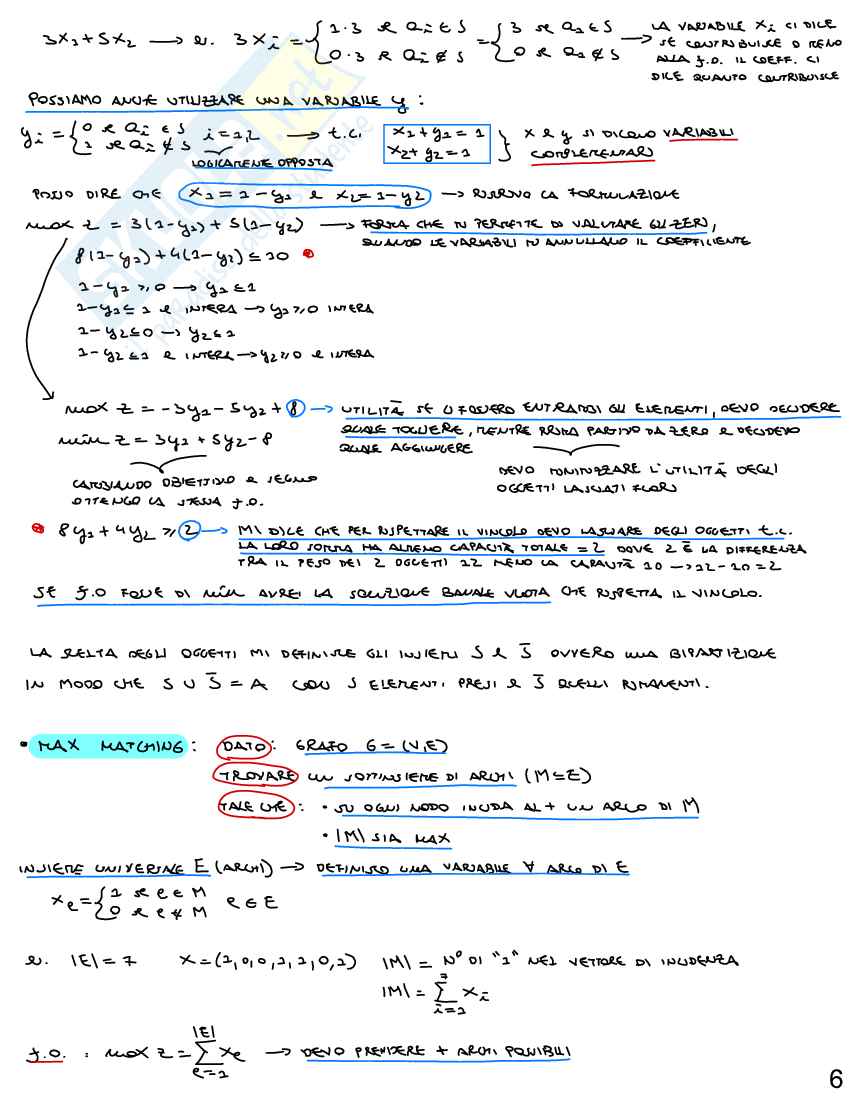 3x1 + 5x2 → es. 3xi = { 1·3 se ai ∈ S = { 3 se a1 ∈ S → LA VARIABILE xi CI DICE
0·3 se ai ∉ S 0 se a1 ∉ S SE CONTRIBUISCE O MENO
ALLA f.o. IL COEFF. CI
DICE QUANTO CONTRIBUISCE
POSSIAMO ANCHE UTILIZZARE UNA VARIABILE y :
yi = { 0 se ai ∈ S i = 1,2 → t.c. x1 + y1 = 1 } x e y SI DICONO VARIABILI
1 se ai ∉ S x2 + y2 = 1 COMPLEMENTARI
LOGICAMENTE OPPOSTA
POSSO DIRE CHE x1 = 1 - y1 e x2 = 1 - y2 → RISCRIVO LA FORMULAZIONE
max z = 3(1-y1) + 5(1-y2) → FORMA CHE MI PERMETTE DI VALUTARE GLI ZERI,
QUANDO LE VARIABILI MI ANNULLANO IL COEFFICIENTE
8(1-y1) + 4(1-y2) ≤ 10
1-y1 ≥ 0 → y1 ≤ 1
1-y1 ≤ 1 e INTERA → y1 ≥ 0 INTERA
1-y2 ≤ 0 → y2 ≤ 1
1-y2 ≤ 1 e INTERA → y2 ≥ 0 e INTERA
max z = -3y1 - 5y2 + 8 → UTILITÀ SE CI FOSSERO ENTRAMBI GLI ELEMENTI, DEVO DECIDERE
min z = 3y1 + 5y2 - 8 QUALE TOGLIERE, MENTRE PRIMA PARTIVO DA ZERO E DECIDEVO
QUALE AGGIUNGERE
CAMBIANDO OBIETTIVO E SEGNO DEVO MINIMIZZARE L'UTILITÀ DEGLI
OTTENGO LA STESSA f.o. OGGETTI LASCIATI FUORI
8y1 + 4y2 ≥ 2 → MI DICE CHE PER RISPETTARE IL VINCOLO DEVO LASCIARE DEGLI OGGETTI t.c.
LA LORO SOMMA HA ALMENO CAPACITÀ TOTALE = 2 DOVE 2 È LA DIFFERENZA
TRA IL PESO DEI 2 OGGETTI 12 MENO LA CAPACITÀ 10 → 12-10=2
SE f.o FOSSE DI min AVREI LA SOLUZIONE BANALE VUOTA CHE RISPETTA IL VINCOLO.
LA SCELTA DEGLI OGGETTI MI DEFINISCE GLI INSIEMI S e S̄ OVVERO UNA BIPARTIZIONE
IN MODO CHE S ∪ S̄ = A CON S ELEMENTI PRESI e S̄ QUELLI RIMANENTI.
• MAX MATCHING : DATO : GRAFO G = (V,E)
TROVARE UN SOTTINSIEME DI ARCHI (M⊆E)
TALE CHE : • SU OGNI NODO INCIDA AL + UN ARCO DI M
• |M| SIA MAX
INSIEME UNIVERSALE E (ARCHI) → DEFINISCO UNA VARIABILE ∀ ARCO DI E
xe = { 1 se e ∈ M e ∈ E
0 se e ∉ M
es. |E| = 7 x = (1,0,0,1,1,0,1) |M| = N° DI "1" NEL VETTORE DI INCIDENZA
|M| = Σ_{i=1}^{7} xi
f.o. : max z = Σ_{e=1}^{|E|} xe → DEVO PRENDERE + ARCHI POSSIBILI
6